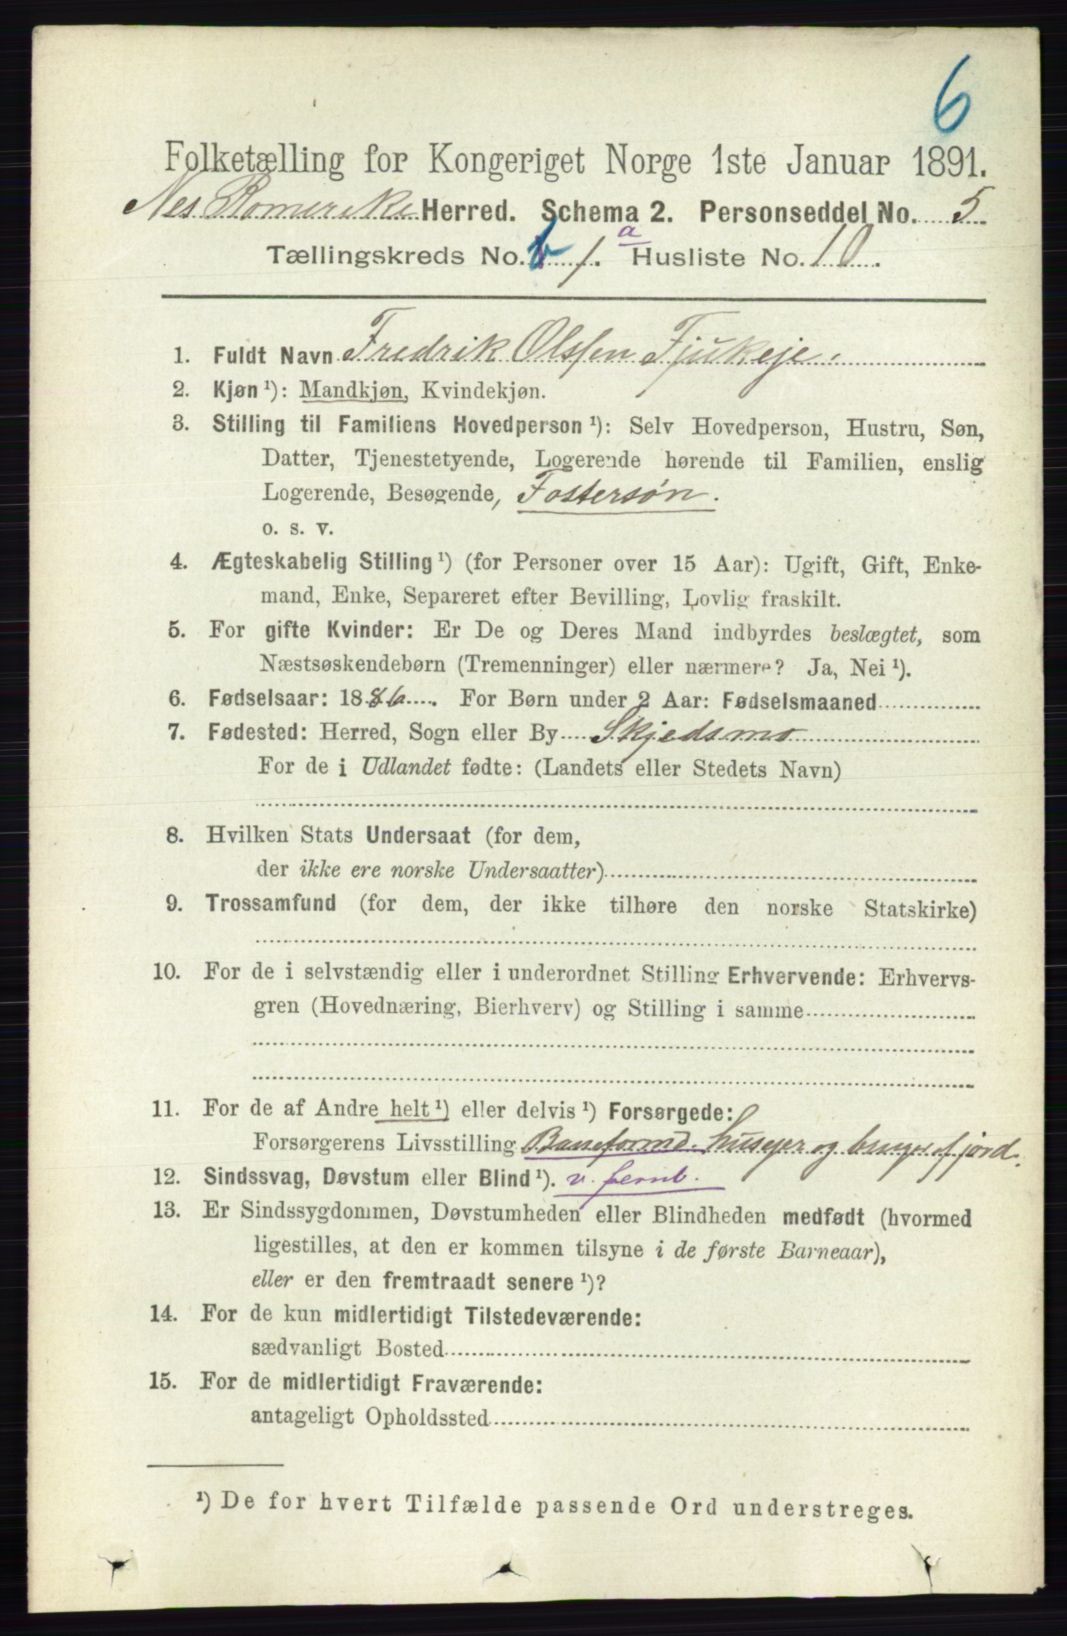 6
Folketælling for Kongeriget Norge 1ste Januar 1891.
Nes Romerike Herred. Schema 2. Personseddel No. 5
Tællingskreds No. 1. a Husliste No. 10.
1. Fuldt Navn Fredrik Olssen Fjukeje.
2. Kjøn ¹): Mandkjøn, Kvindekjøn.
3. Stilling til Familiens Hovedperson ¹): Selv Hovedperson, Hustru, Søn,
Datter, Tjenestetyende, Logerende hørende til Familien, enslig
Logerende, Besøgende, Fostersøn.
o. s. v.
4. Ægteskabelig Stilling ¹) (for Personer over 15 Aar): Ugift, Gift, Enke-
mand, Enke, Separeret efter Bevilling, Lovlig fraskilt.
5. For gifte Kvinder: Er De og Deres Mand indbyrdes beslægtet, som
Næstsøskendebørn (Tremenninger) eller nærmere? Ja, Nei ¹).
6. Fødselsaar: 1886. For Børn under 2 Aar: Fødselsmaaned
7. Fødested: Herred, Sogn eller By Skjedsmo
For de i Udlandet fødte: (Landets eller Stedets Navn)
8. Hvilken Stats Undersaat (for dem,
der ikke ere norske Undersaatter)
9. Trossamfund (for dem, der ikke tilhøre den norske Statskirke)
10. For de i selvstændig eller i underordnet Stilling Erhvervende: Erhvervs-
gren (Hovednæring, Bierhverv) og Stilling i samme
11. For de af Andre helt ¹) eller delvis ¹) Forsørgede:
Forsørgerens Livsstilling Baneformd. Husejer og bruger af jord.
12. Sindssvag, Døvstum eller Blind ¹). v. jernb.
13. Er Sindssygdommen, Døvstumheden eller Blindheden medfødt (hvormed
ligestilles, at den er kommen tilsyne i de første Barneaar),
eller er den fremtraadt senere ¹)?
14. For de kun midlertidigt Tilstedeværende:
sædvanligt Bosted
15. For de midlertidigt Fraværende:
antageligt Opholdssted
¹) De for hvert Tilfælde passende Ord understreges.